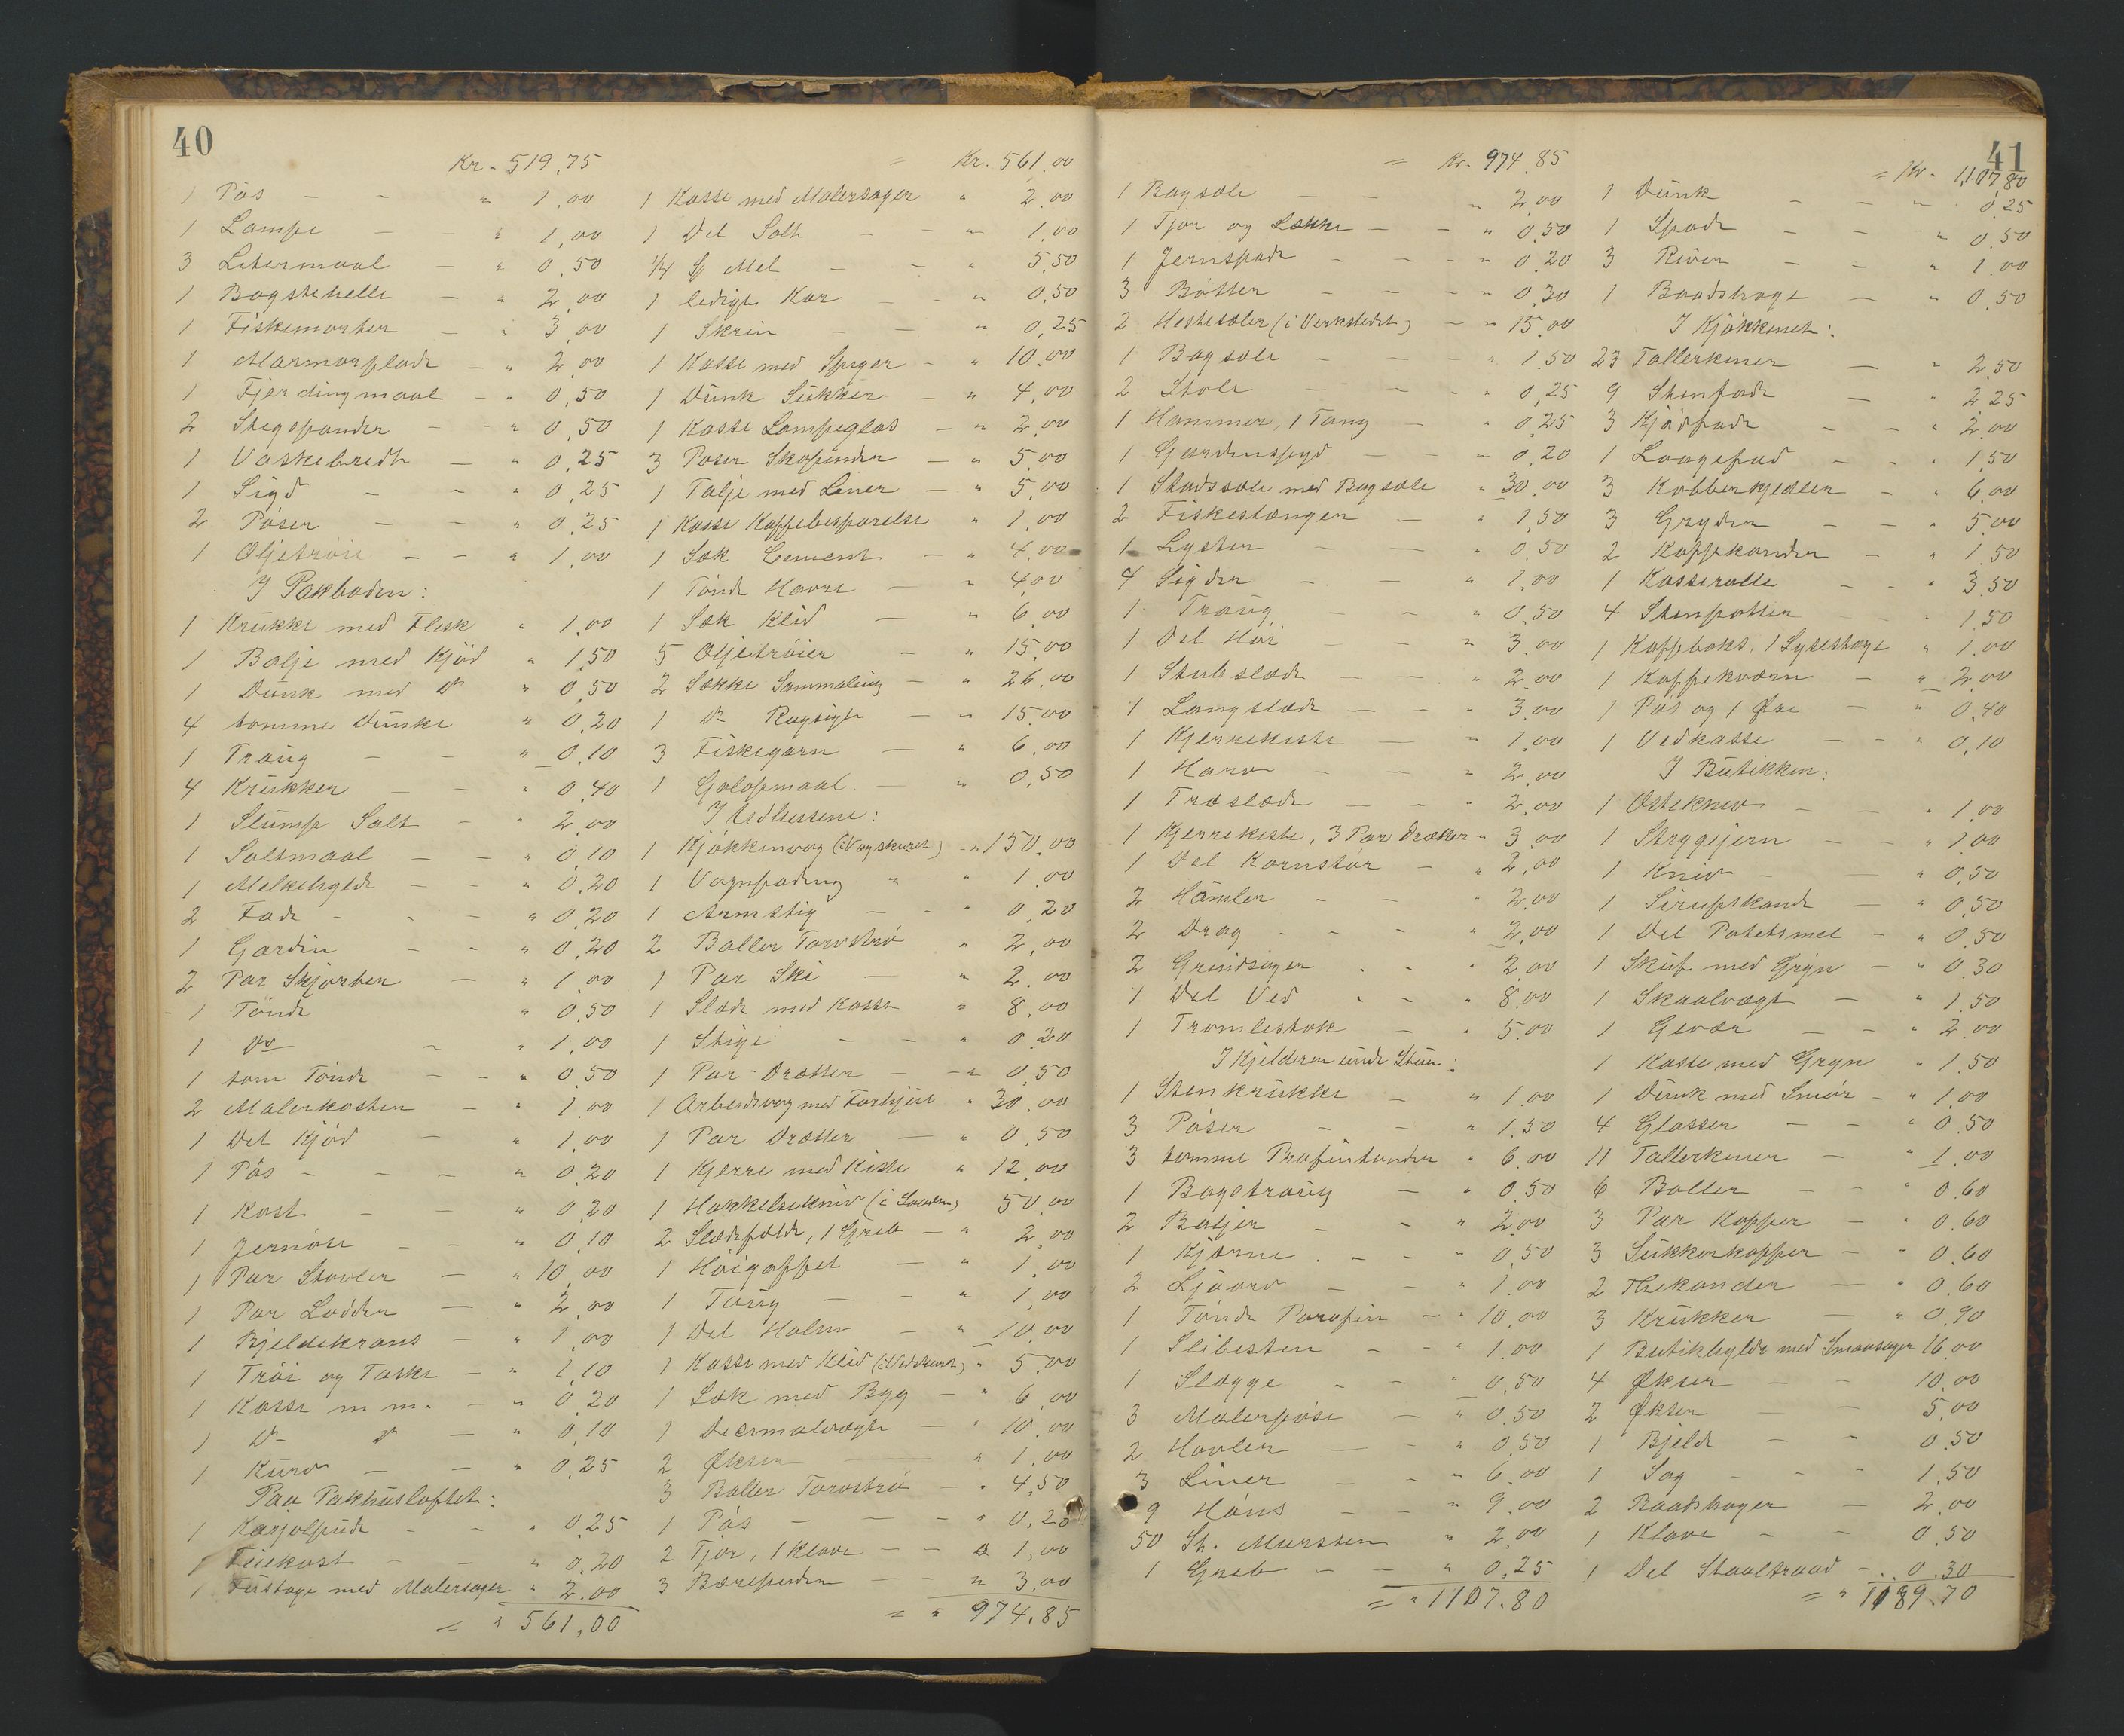 40
Kr. 519,75
1 Pös - - " 1,00
1 Lampe - - " 1,00
3 Litermaal - " 0,50
1 Bagstehelle - " 2,00
1 Fiskemorter - " 3,00
1 Marmorplade - " 2,00
1 Fjerdingmaal - " 0,50
2 Stegepander - " 0,50
1 Vaskebredt - " 0,25
1 Sigd - - " 0,25
2 Pöser - - " 0,25
1 Oljetröie - - " 1,00
I Pakboden:
1 Krukke med Flesk " 1,00
1 Balje med Kjöd " 1,50
1 Dunk med Do " 0,50
4 tomme Dunke " 0,20
1 Traug - - " 0,10
4 Krukker - - " 0,40
1 Slump Salt - " 2,00
1 Saltmaal - - " 0,10
1 Melkehylde - - " 0,20
2 Fade - - - " 0,20
1 Gardin - - " 0,20
2 Par Skjorter - " 1,00
1 Tönde " 0,50
1 Do - " 1,00
1 tom Tönde - - " 0,50
2 Malerkoster - " 1,00
1 Del Kjöd - " 1,00
1 Pös - - - " 0,20
1 Kost - - " 0,20
1 Jernöse - - " 0,10
1 Par Stövler - " 10,00
1 Par Lodder - " 2,00
1 Bjeldekrans - " 1,00
1 Tröie og Taske - " 1,10
1 Kasse m m. - " 0,20
1 Do Do - " 0,10
1 Kurv - - " 0,25
Paa Pakhusloftet:
1 Karjolpude - - " 0,25
1 Feiekost - - " 0,20
1 Fustage med Malersager " 2,00
= " 561,00
= Kr. 561,00
1 Kasse med Malersager " 2,00
1 Del Salt - - " 1,00
1/4 Sj Mel - - " 5,50
1 ledigt Kar - - " 0,50
1 Skrin - - " 0,25
1 Kasse med Spiger - " 10,00
1 Dunk Sukker - " 4,00
1 Kasse Lampeglas - " 2,00
3 Poser Skopinder - " 5,00
1 Talje med Liner - " 5,00
1 Kasse Kaffebesparelse " 1,00
1 Sæk Cement - " 4,00
1 Tönde Havre - " 4,00
1 Sæk Klid - " 6,00
5 Oljetröier - " 15,00
2 Sække Sammaling - " 26,00
1 Do Rugsigt - " 15,00
3 Fiskegarn - " 6,00
1 Galopmaal - " 0,50
I Udhusene:
1 Kjökkenvog (i Vogskuret) - " 150,00
1 Vognpading " " 1,00
1 Armstig - - " 0,20
2 Baller Torvströ " 2,00
1 Par Ski - " 2,00
1 Slæde med Kasse " 8,00
1 Stige - - " 0,20
1 Par Drætter - - " 0,50
1 Arbeidsvog med Forhjul " 30,00
1 Par Drætter - " 0,50
1 Kjerre med Kiste " 12,00
1 Hakkelsekniv (i Laaven) 50,00
2 Slædefælde, 1 Greb - " 2,00
1 Höigaffel - " 1,00
1 Taug - - " 1,00
1 Del Halm - " 10,00
1 Kasse med Klid (i Vedskuret) " 5,00
1 Sæk med Byg - " 6,00
1 Decimalvægt - " 10,00
2 Økser - " 1,00
3 Baller Torvströ - " 4,50
1 Pös - - - " 0,20
2 Tjor, 1 Klave - - " 1,00
3 Bærepuder - - " 3,00
= " 974,85
= Kr. 974,85
1 Bagsæle - - " 2,00
1 Tjor og Lække - - " 0,50
1 Jernspade - - - " 0,20
3 Bötter - - - " 0,30
2 Hestesæler (i Verkstedet) - " 15,00
1 Bagsæle - - - " 1,50
2 Stole - - - " 0,25
1 Hammer, 1 Tang - " 0,25
1 Gardinspyd - - " 0,20
1 Stadssæle med Bagsæle " 30,00
2 Fiskestænger - " 1,50
1 Lyster - - " 0,50
4 Sigder - - " 1,00
1 Traug - - " 0,50
1 Del Höi - - " 3,00
1 Stubslæde - - " 2,00
1 Langslæde - - " 3,00
1 Kjerrekiste - " 1,00
1 Harv - - " 2,00
1 Træslæde - - " 2,00
1 Kjerrekiste, 3 Par Drætter " 3,00
1 Del Kornstör - " 2,00
2 Hamler - - " 2,00
2 Drag - - - " 2,00
2 Grindsager - - " 2,00
1 Del Ved - - " 8,00
1 Tromlestok - " 5,00
I Kjelderen under Stuen:
1 Stenkrukke - " 1,00
3 Pöser - - " 1,50
3 tomme Prafintønder " 6,00
1 Bagetraug - " 0,50
2 Baljer - - " 2,00
1 Kjærne - - " 0,50
2 Ljaaorv - - " 1,00
1 Tönde Parafin - " 10,00
1 Slibesten - - " 1,00
1 Slægge - - " 0,50
3 Malerpöse - " 0,50
2 Høvler - - " 0,50
3 Liner - - " 6,00
9 Höns - - " 9,00
50 St. Mursten " 2,00
1 Greb - - " 0,25
= " 1107.80
41
= Kr. 1,107,80
1 Dunk - - " 0,25
1 Spade - - " 0,50
3 River - - " 1,00
1 Baadshage - " 0,50
I Kjökkenet:
23 Tallerkener - " 2,50
9 Stenfade - " 2,25
3 Kjödfade - - " 2,00
1 Laagefad - - " 1,50
3 Kobberkjedler - " 6,00
3 Gryder - - " 5,00
2 Kaffekander - " 1,50
1 Kasserolle - - " 3,50
4 Stenpotter - - " 1,50
1 Kaffeboks, 1 Lysestage " 1,00
1 Kaffekværn - " 2,00
1 Pös og 1 Øse - " 0,40
1 Vedkasse - - " 0,10
I Butikken:
1 Ostekniv - - " 1,00
1 Strygejern - - " 1,00
1 Kniv - - " 0,50
1 Sirupskande - " 0,50
1 Del Potetsmel - " 0,50
1 Skuf med Gryn - " 0,30
1 Skaalvægt - " 1,50
1 Gevær - - " 2,00
1 Kasse med Gryn " 1,50
1 Dunk med Smör - " 1,00
4 Glasser - - " 0,50
11 Tallerkener - " 1,00
6 Boller - - " 0,60
3 Par Kopper - " 0,60
3 Sukkerkopper - " 0,60
2 Thekander - " 0,60
3 Krukker - " 0,90
1 Butikhylde med Smaasager 16,00
4 Økser - - 10,00
2 Økser - - 5,00
1 Bjelde - - 0,50
1 Sag - - - 1,50
2 Baadshager - 2,00
1 Klave - - 0,50
1 Del Staaltraad - " 0.30
= " 1189.70